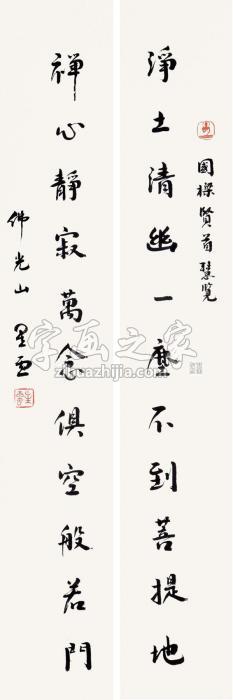 淨土清幽一塵不到菩提地
國樑賢首慧覽
禪心靜寂萬念俱空般若門
佛光山 星雲
字画之家
zihuazhijia.com